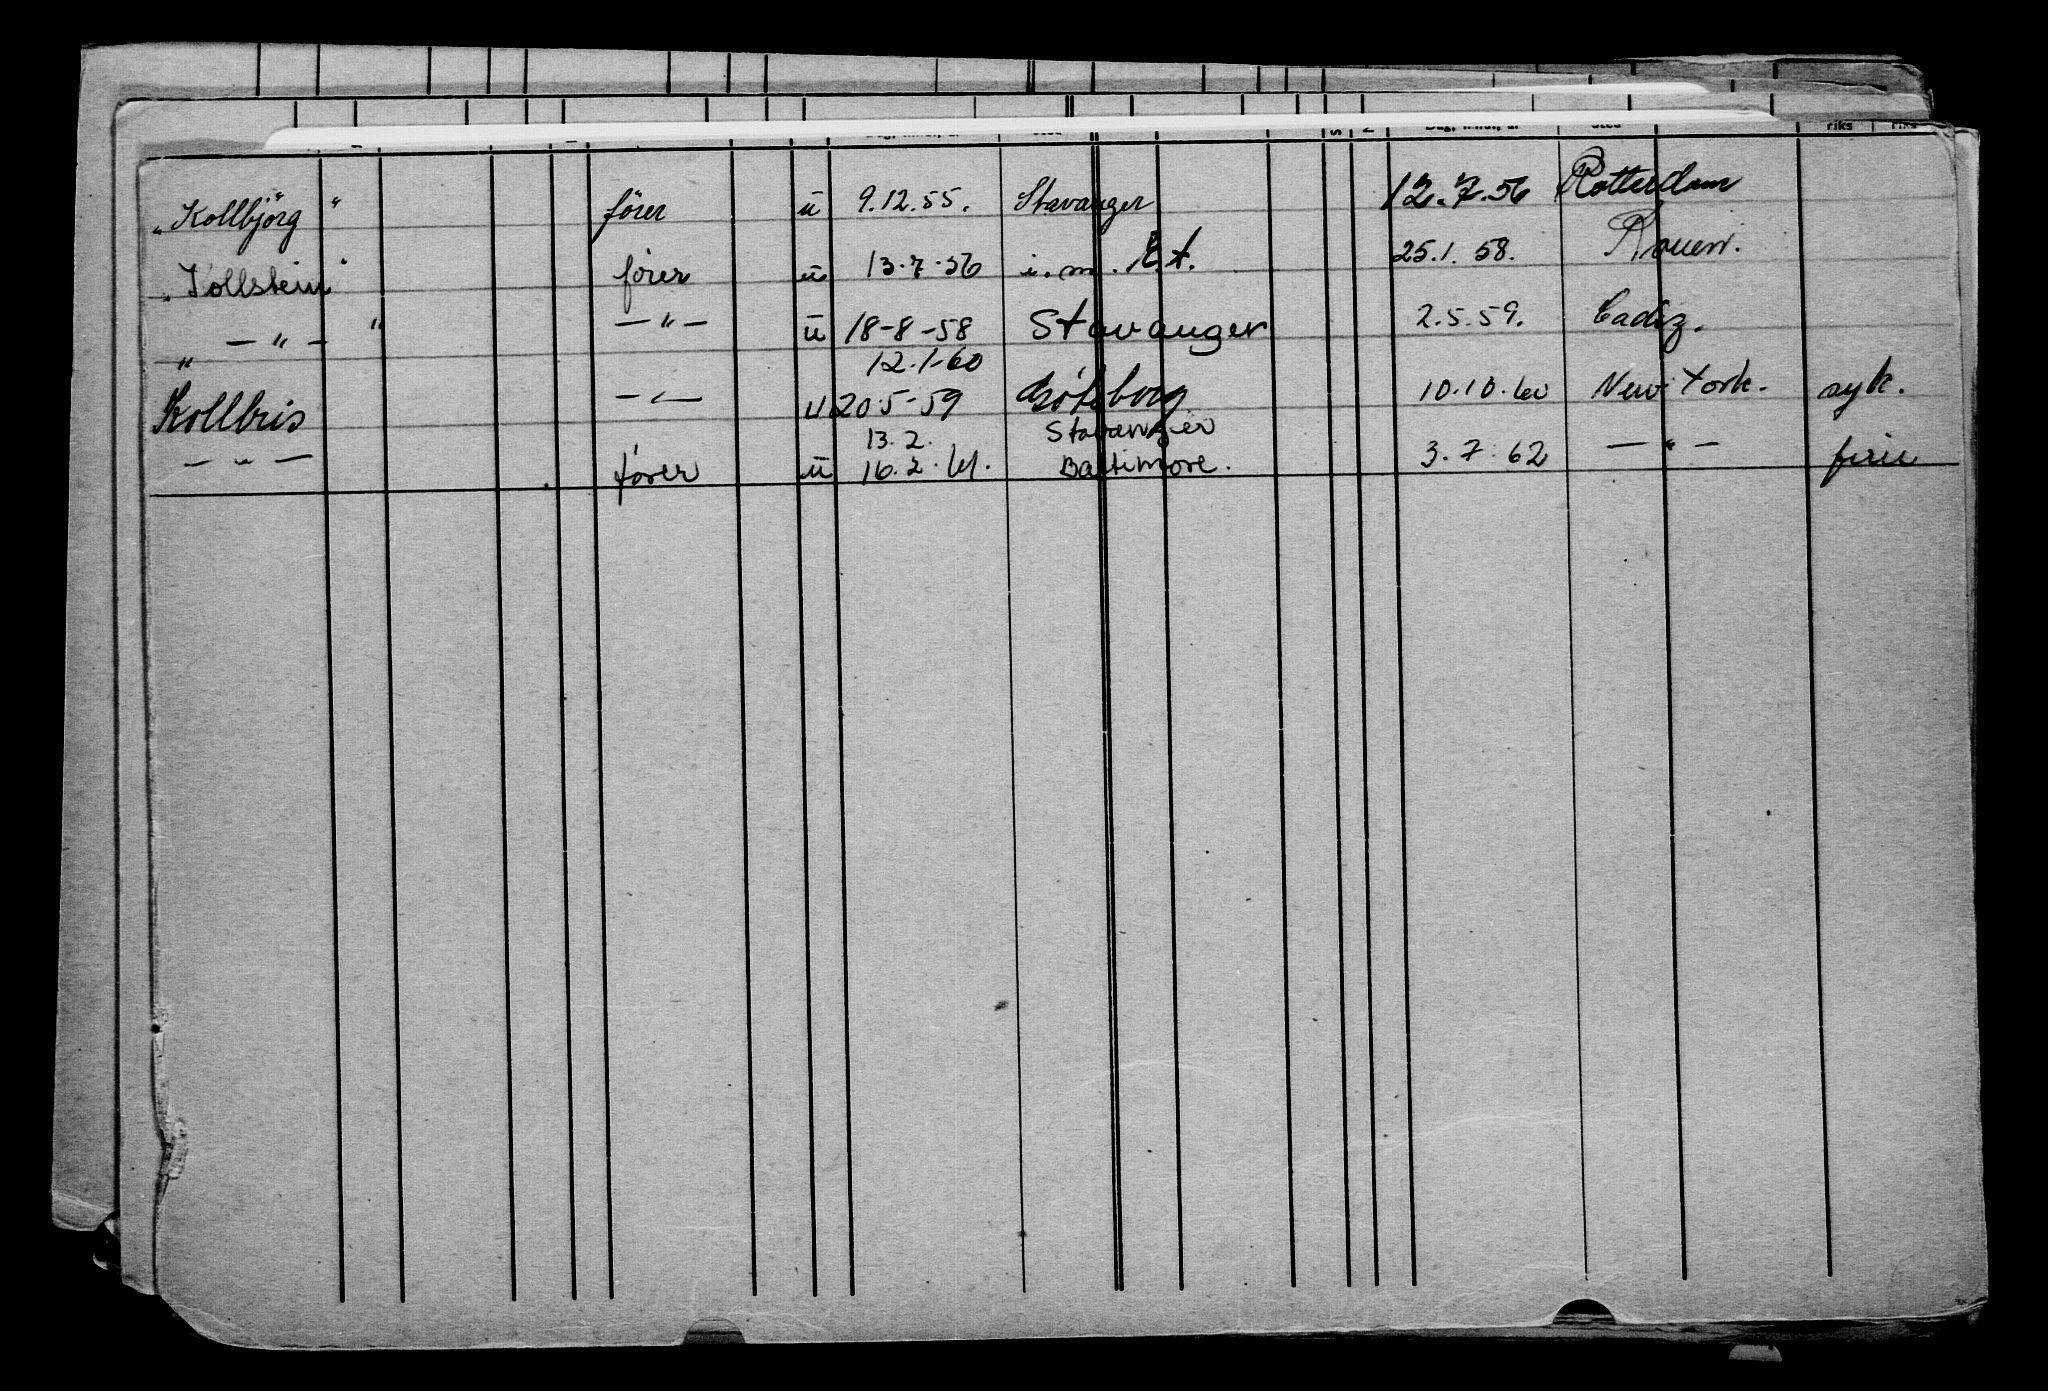 riks
"Kollbjörg" fører ū 9.12.55. Stavanger 12.7.56 Rotterdam
"Kollstein" fører ū 13.7.56 i.m. 25.1.58. Rouen.
" — " — " — " — ū 18-8-58 Stavanger 2.5.59. Cadiz.
12.1-60
Kollbris — " — u 20.5-59 Göteborg 10.10.60 New York. syk.
13.2. Stavanger
— " — fører ū 16.2.61. Baltimore. 3.7.62 — " — ferie